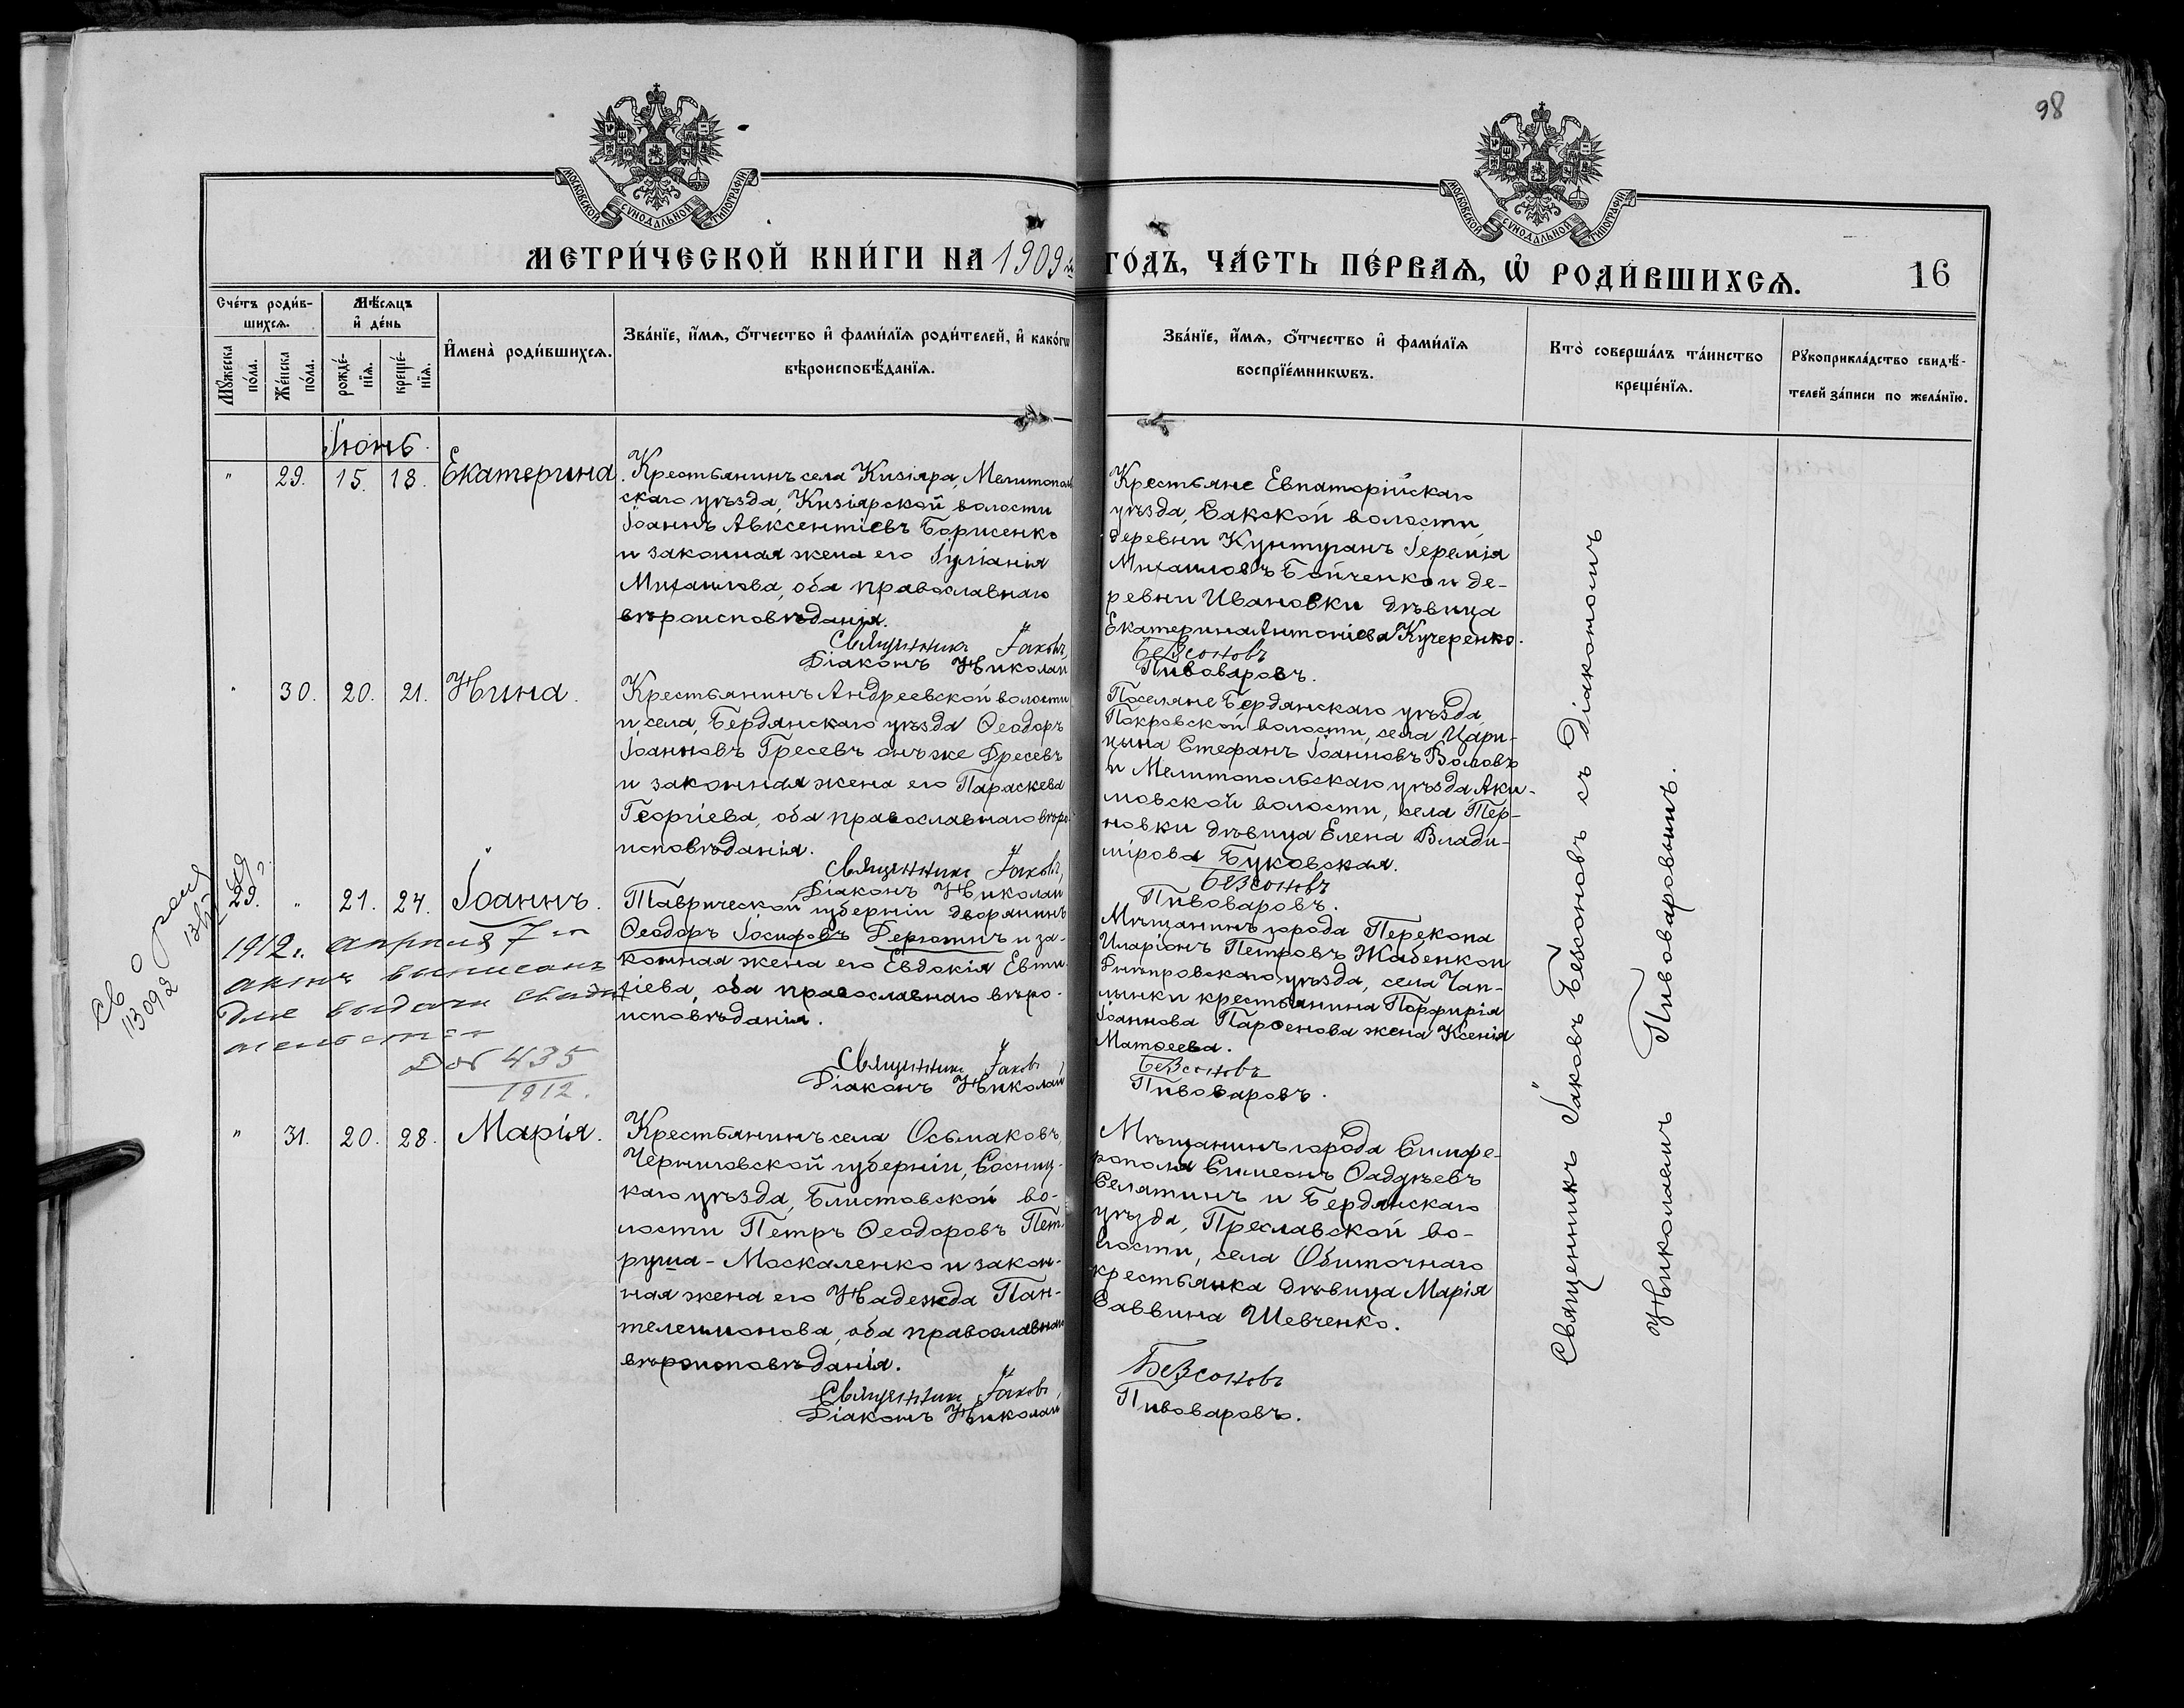 98
МОСКОВСКОЙ СУНОДАЛЬНОЙ ТИПОГРАФІИ
МОСКОВСКОЙ СУНОДАЛЬНОЙ ТИПОГРАФІИ
МЕТРИ́ЧЕСКОЙ КНИ́ГИ НА 1909 й
ГО́ДЪ, ЧА́СТЬ ПЕ́РВАѦ, Ѡ҆ РОДИ́ВШИХСѦ.
16
Сче́тъ роди́в-
шихсѧ.
Мѣ́сѧцъ
и҆ де́нь
Мꙋ́жеска
по́ла.
Же́нска
по́ла.
рожде́-
нїѧ.
креще́-
нїѧ.
И҆мена̀ роди́вшихсѧ.
Зва́нїе, и҆́мѧ, ѻ҆́тчество и҆ фами́лїѧ роди́телей, и҆ како́гѡ
вѣроисповѣ́данїѧ.
Зва́нїе, и҆́мѧ, ѻ҆́тчество и҆ фами́лїѧ
воспрїе́мникѡвъ.
Кто̀ соверша́лъ та́инство
креще́нїѧ.
Рꙋкоприкла́дство свидѣ́-
телей за́писи по жела́нїю.
Іюнь.
" 29. 15. 18. Екатерина.
Крестьянинъ села Кизіяра, Мелитополь
скаго уѣзда, Кизіярской волости
Іоаннъ Авксентіевъ Борисенко
и законная жена его Іуліанія
Михаилова, оба православнаго
вѣроисповѣданія.
Священникъ Іаковъ
Діаконъ Николай
Крестьяне Евпаторійскаго
уѣзда, Сакской волости,
деревни Кунтуганъ Іеремія
Михаиловъ Бойченко и де-
ревни Ивановки дѣвица
Екатерина Антоніева Кучеренко.
Безсоновъ
Пивоваровъ.
" 30. 20. 21. Нина.
Крестьянинъ Андреевской волости
и села, Бердянскаго уѣзда Ѳеодоръ
Іоанновъ Гресевъ онъ же Дресевъ
и законная жена его Параскева
Георгіева, оба православнаго вѣро-
исповѣданія.
Священникъ Іаковъ,
Діаконъ Николай
Поселяне Бердянскаго уѣзда,
Покровской волости, села Цари-
цына Стефанъ Іоанновъ Воловъ
и Мелитопольскаго уѣзда, Аки-
мовской волости, села Тер-
новки дѣвица Елена Влади-
мірова Буковская.
Безсоновъ
Пивоваровъ.
29. " 21. 24. Іоаннъ.
Таврической губерніи дворянинъ
Ѳеодоръ Іосифовъ Дерютинъ и за-
конная жена его Евдокія Евти-
хіева, оба православнаго вѣро-
исповѣданія.
Священникъ Іаковъ
Діаконъ Николай
Мѣщанинъ города Перекопа
Иларіонъ Петровъ Жабенко и
Днѣпровскаго уѣзда, села Чап-
лынки крестьянина Порфирія
Іоаннова Парѳенова жена Ксенія
Матѳеева.
Безсоновъ
Пивоваровъ.
1912 г. апрѣля 7 го
актъ выписанъ
для выдачи свидѣ
тельства
435
1912.
Св о рож
13092
" 31. 20. 28. Марія.
Крестьянинъ села Осьмаковъ,
Черниговской губерніи, Сосниц-
каго уѣзда, Блистовской во-
лости Петръ Ѳеодоровъ Пет-
руша-Москаленко и закон-
ная жена его Надежда Пан-
телеимонова, оба православнаго
вѣроисповѣданія.
Священникъ Іаковъ
Діаконъ Николай
Мѣщанинъ города Симфе-
рополя Симеонъ Ѳаддѣевъ
Селятинъ и Бердянскаго
уѣзда, Преславской во-
лости, села Обиточнаго
крестьянка дѣвица Марія
Саввина Шевченко.
Безсоновъ
Пивоваровъ.
Священникъ Іаковъ Безсоновъ съ Діакономъ
Николаемъ Пивоваровымъ.